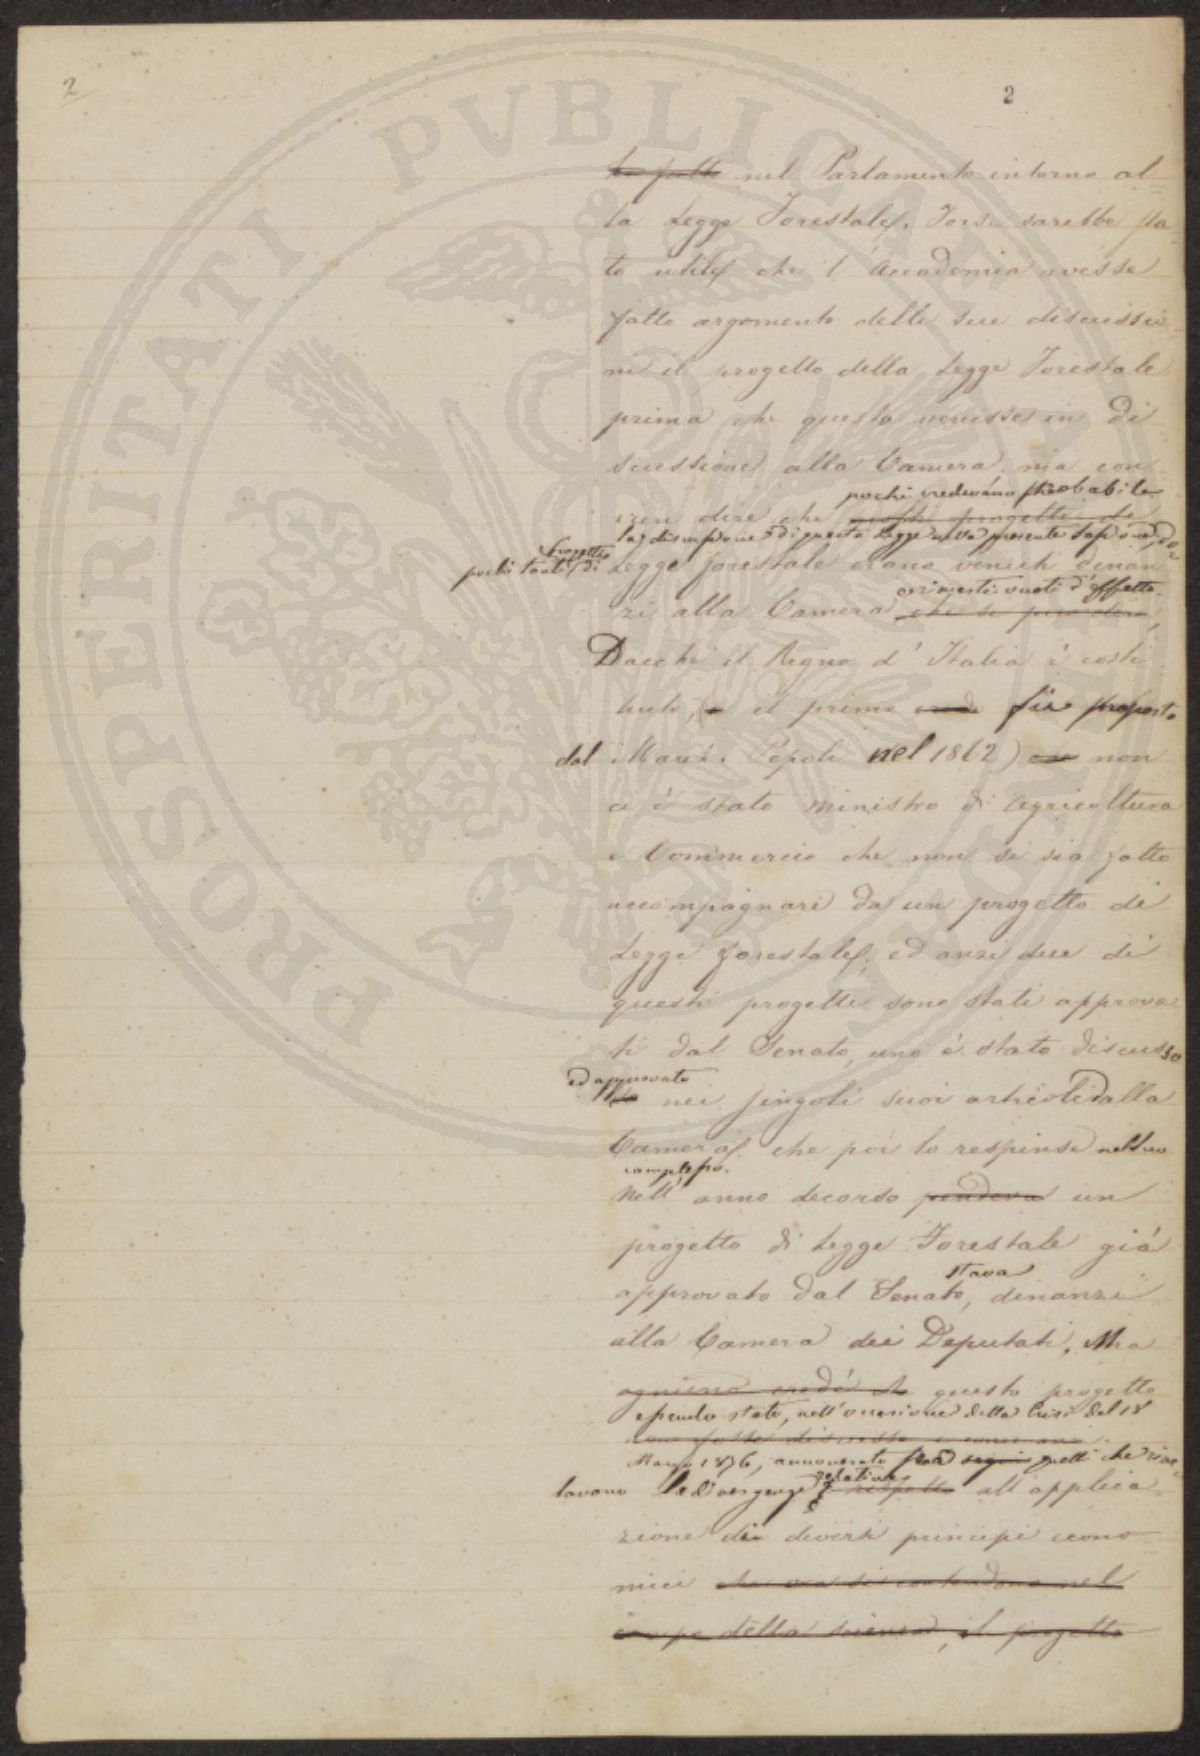 2
2
ha fatto nel Parlamento intorno al-
la Legge Forestale. Forse sarebbe sta-
to utile che l'Accademia avesse
fatto argomento delle sue discussio-
ni il progetto della Legge Forestale
prima che questo venisse in di
scussione alla Camera, ma con
pochi credevano probabile
vien dire che progetti di
la discussione di questa Legge nella presente Sessione, do-
po che tanti progetti di Legge forestale erano venuti dinan
eri rimasti vuoti d'effetto.
zi alla Camera che si può dire,
Dacchè il Regno d'Italia è costi
tuito, (e il primo fu proposto
dal March. Pepoli nel 1862) che non
ci è stato ministro di Agricoltura
e Commercio che non si sia fatto
accompagnare da un progetto di
Legge forestale, ed anzi due di
questi progetti sono stati approva
ti dal Senato, uno è stato discusso
ed approvato
to nei singoli suoi articoli dalla
Camera che poi lo respinse nel suo
complesso.
Nell'anno decorso pendeva un
progetto di Legge Forestale già
stava
approvato dal Senato, dinanzi
alla Camera dei Deputati. Ma
ognuno credè che questo progetto
essendo stato, nell'occasione della Crisi del 18
non fosse discusso
Marzo 1876, annoverato fra quelli che rive-
relative
lavano le divergenze rispetto all'applica-
zione di diversi principi econo-
mici che ora si contendono nel
campo della scienza, il progetto